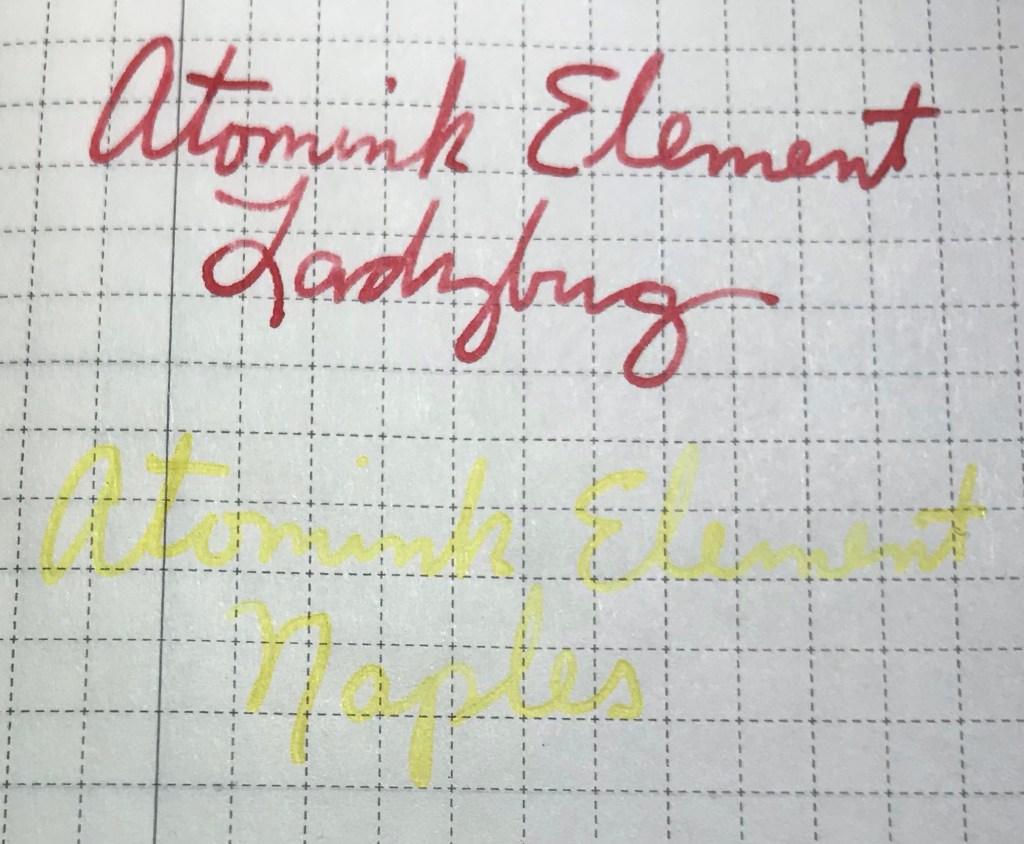 Atomink Element
Ladybug
Atomink Element
Naples